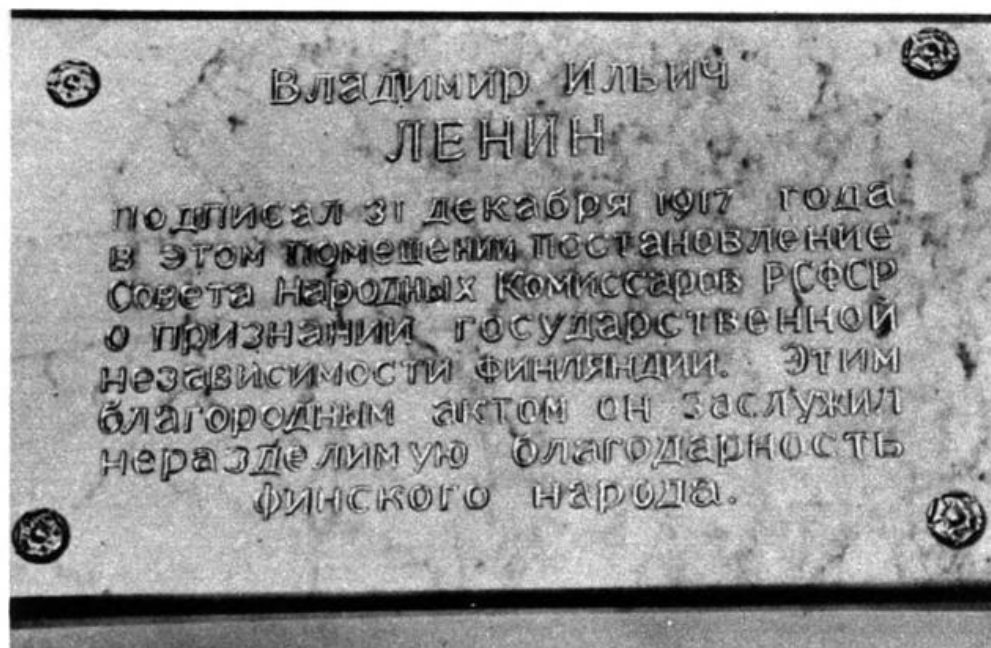 Владимир Ильич
ЛЕНИН
подписал 31 декабря 1917 года
в этом помещении постановление
Совета Народных Комиссаров РСФСР
о признании государственной
независимости Финляндии. Этим
благородным актом он заслужил
неразделимую благодарность
финского народа.